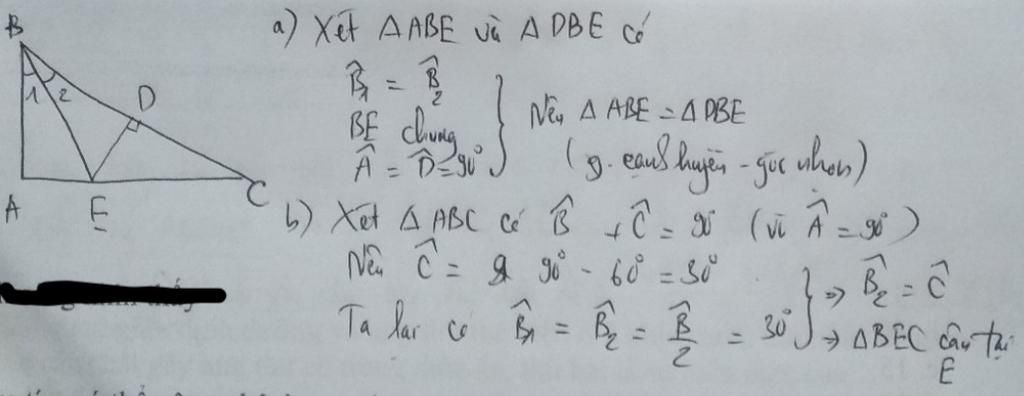 a) Xét △ ABE và △ DBE có
B̂₁ = B̂₂
BE chung
Â = D̂ = 90°
Nên △ ABE = △ DBE
(g. cạnh huyền - góc nhọn)
B
1 2
D
A E C
b) Xét △ ABC có B̂ + Ĉ = 90 (vì Â = 90°)
Nên Ĉ = 90° - 60° = 30°
Ta lại có B̂₁ = B̂₂ = B̂/2 = 30°
⇒ B̂₂ = Ĉ
⇒ △BEC cân tại
E